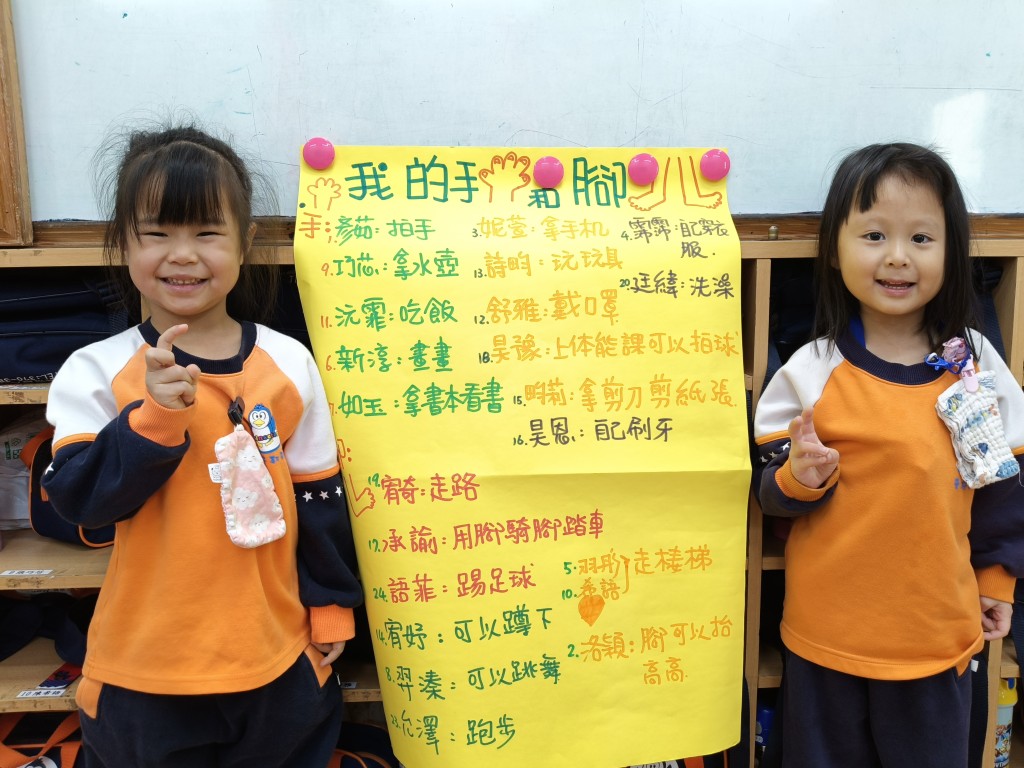 我的手和腳
手:1.彥茹:拍手
3.妮萱:拿手机
4.霈霈:自己穿衣服.
9.巧芯:拿水壺
13.詩昀:玩玩具
20.廷緯:洗澡
11.沅霏:吃飯
12.舒雅:戴口罩
6.新淳:畫畫
18.昊豫:上体能課可以拍球
7.如玉:拿書本看書
15.昀莉:拿剪刀剪紙張.
16.昊恩:自己刷牙
19.宥奇:走路
17.承諭:用腳騎腳踏車
24.語菲:踢足球
5.羽彤
10.希語
走楼梯
14.宥妤:可以蹲下
2.洛穎:腳可以抬高高.
8.羿溱:可以跳舞
23.允澤:跑步